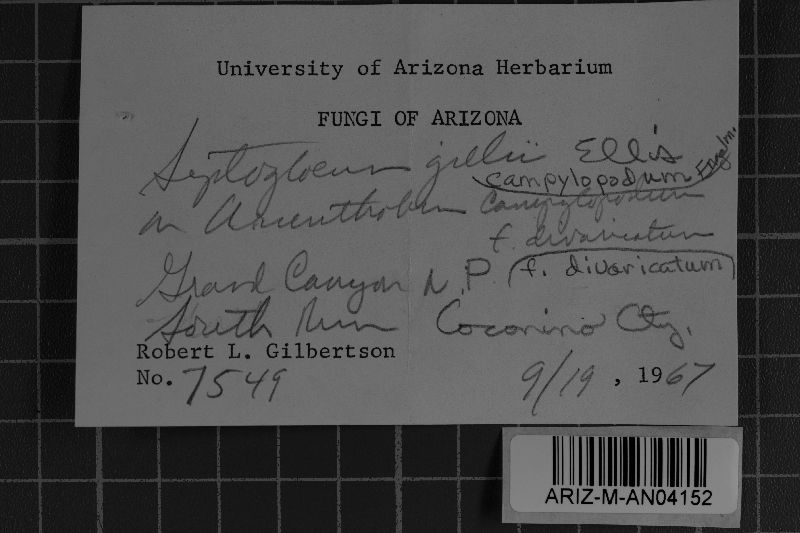 University of Arizona Herbarium
FUNGI OF ARIZONA
Septogloeum gillii Ellis
campylopodum Engelm.
on Arceuthobium campylopodum
f. divaricatum
Grand Canyon N.P. (f. divaricatum)
South Rim Coconino Cty.
Robert L. Gilbertson
No. 7549 9/19, 1967
ARIZ-M-AN04152